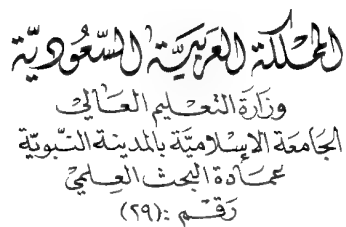 المملكة العربيّة السّعوديّة
وزارة التعليم العالي
الجامعة الإسلاميّة بالمدينة النبّويّة
عمادة البحث العلمي
رقم : (٢٩)